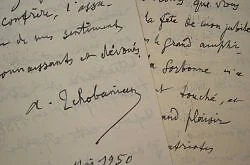 confrère, l'assu
de mes sentiments
connaissants et dévoués
A. Tchobanian
Mai 1950
la fête de mon jubilé
grand amphi
Sorbonne m'a
touché, et
and plaisir
patriotes